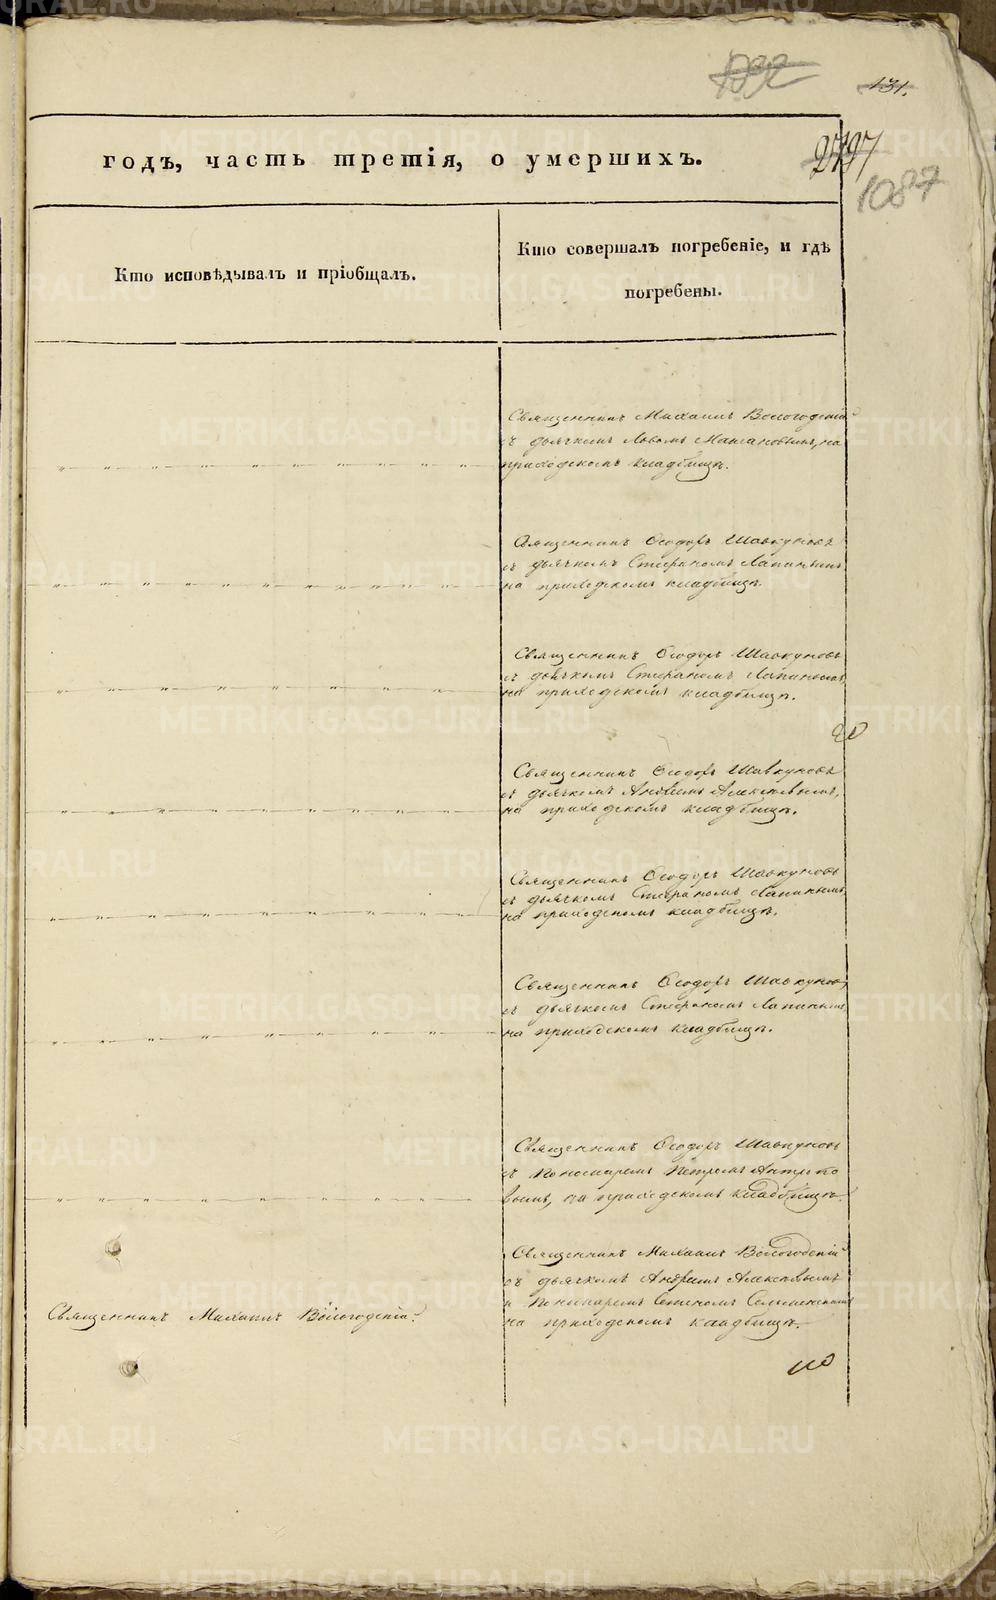 1092
131.
годъ, часть третія, о умершихъ.
2797
1087
Кто исповѣдывалъ и пріобщалъ.
Кто совершалъ погребеніе, и гдѣ
погребены.
Священникъ Михаилъ Вологодскій
съ дьячкомъ на
приходскомъ кладбищѣ.
Священникъ Ѳеодоръ Шавкуновъ
съ дьячкомъ Стефаномъ Лапинымъ,
на приходскомъ кладбищѣ.
Священникъ Ѳеодоръ Шавкуновъ
съ дьячкомъ Стефаномъ Лапинымъ,
на приходскомъ кладбищѣ.
Священникъ Ѳеодоръ Шавкуновъ
съ дьячкомъ
на приходскомъ кладбищѣ.
Священникъ Ѳеодоръ Шавкуновъ
съ дьячкомъ Стефаномъ Лапинымъ,
на приходскомъ кладбищѣ.
Священникъ Ѳеодоръ Шавкуновъ
съ дьячкомъ Стефаномъ Лапинымъ,
на приходскомъ кладбищѣ.
Священникъ Ѳеодоръ Шавкуновъ
съ пономаремъ Петромъ
вымъ, на приходскомъ кладбищѣ.
Священникъ Михаилъ Вологодскій
Священникъ Михаилъ Вологодскій
съ дьячкомъ
и пономаремъ
на приходскомъ кладбищѣ.
METRIKI.GASO-URAL.RU